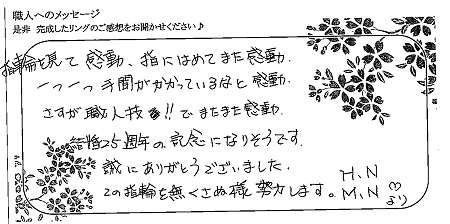 職人へのメッセージ
是非 完成したリングのご感想をお聞かせください♪
指輪を見て感動、指にはめてまた感動.
一つ一つ手間がかかっているなと感動.
さすが職人技!!でまたまた感動.
結婚25週年の記念になりそうです.
誠にありがとうございました.
この指輪を無くさぬ様努力します。
H.N
M.N♡より